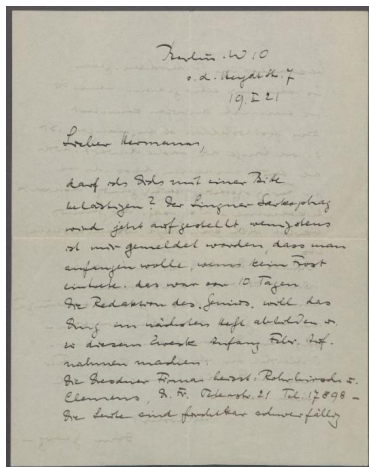 Berlin. W 10
v. d. Heydtstr. 7
19. I 21
Lieber Hermann,
darf ich Dich mit einer Bitte
belästigen? Der Lingner Sarkophag
wird jetzt aufgestellt wenigstens
ist mir gemeldet worden, dass man
anfangen wolle, wenn kein Frost
eintrete. das war vor 10 Tagen.
Die Redaktion des "Genius" will das
Ding im nächsten Heft abbilden u.
zu diesem Zweck Anfang Febr. Auf-
nahmen machen.
Die Dresdner Firma heisst: u.
Clemens, Tel. 17898 –
Die Leute sind furchtbar schwerfällig